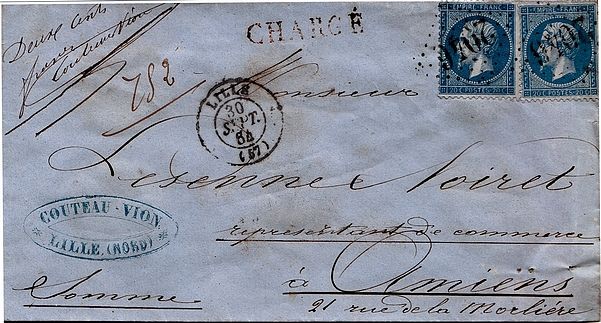 Deux Cents
francs
Couteau Vion
752
CHARGÉ
EMPIRE FRANC.
20 C POSTES 20 C
EMPIRE FRANC.
20 C POSTES 20 C
LILLE
30
SEPT.
64
(57)
Monsieur
Noiret
représentant de commerce
à Amiens
21 rue de la Morlière
Somme
COUTEAU-VION
LILLE (NORD)